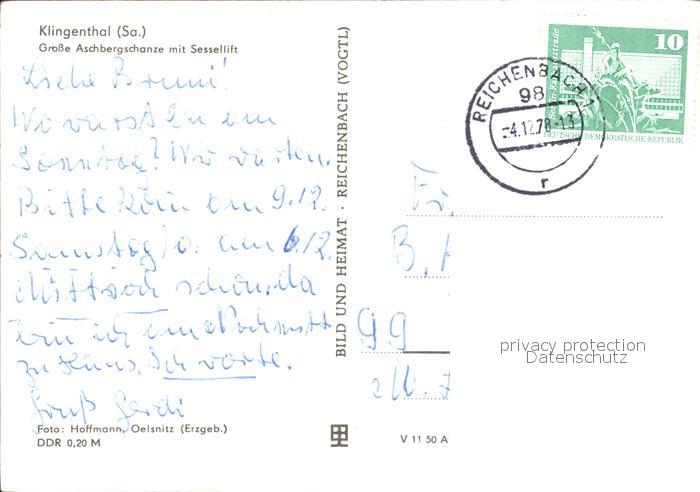 Klingenthal (Sa.)
Große Aschbergschanze mit Sessellift
Liebe Brunni!
Wo warst Du am
Sonntag? Wir warten.
Bitte komm am 9.12.
Samstag o. am 6.12.
Mittwoch schon, da
bin ich am Nachmitt
zu Haus. Ich warte.
Gruß Gerdi
Foto: Hoffmann, Oelsnitz (Erzgeb.)
DDR 0,20 M
BILD UND HEIMAT · REICHENBACH (VOGTL)
V 11 50 A
REICHENBACH 1
98
-4.12.78-13
r
10
DEUTSCHE DEMOKRATISCHE REPUBLIK
Fr.
B.
99
privacy protection
Datenschutz